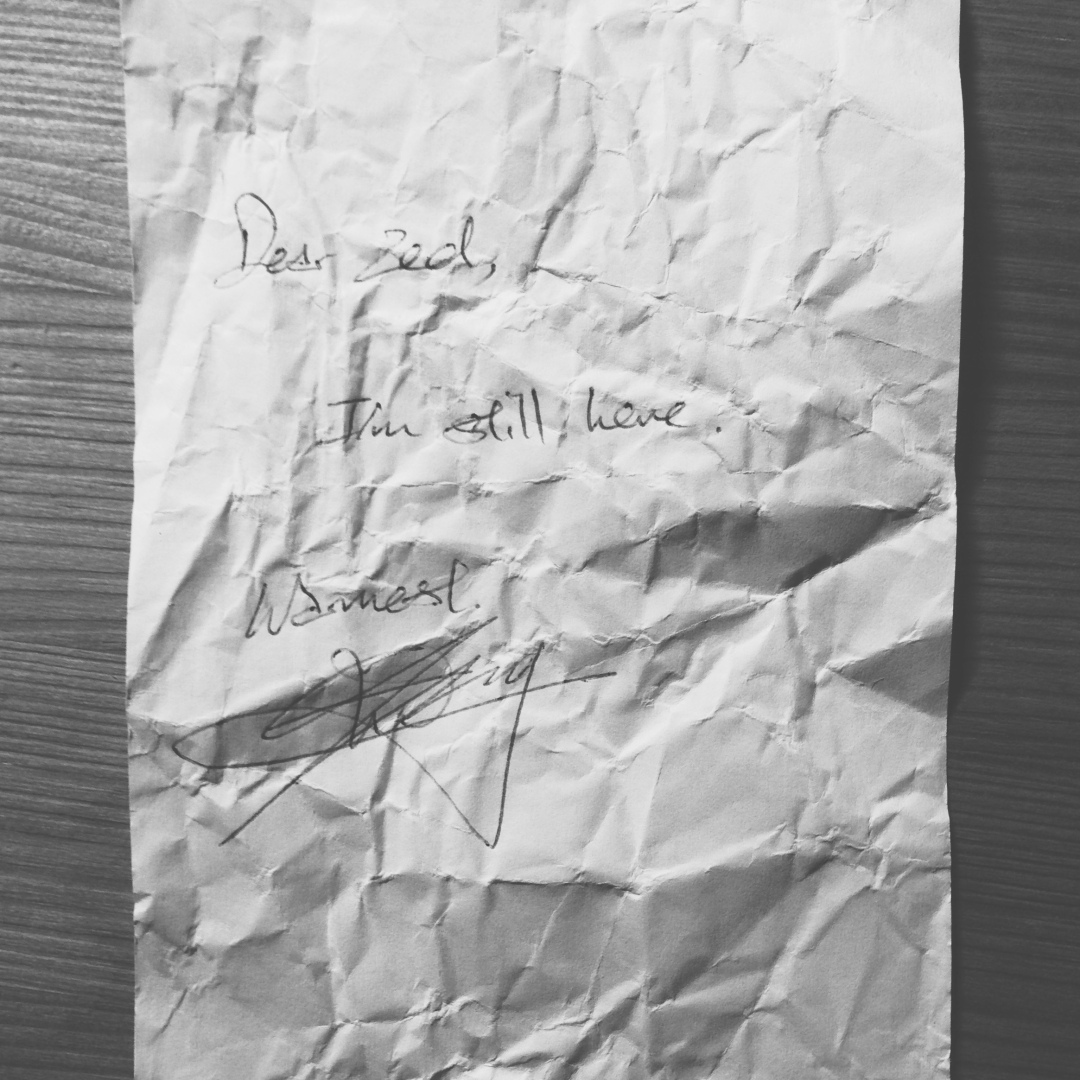 Dear Zed,
I'm still here.
Warmest.